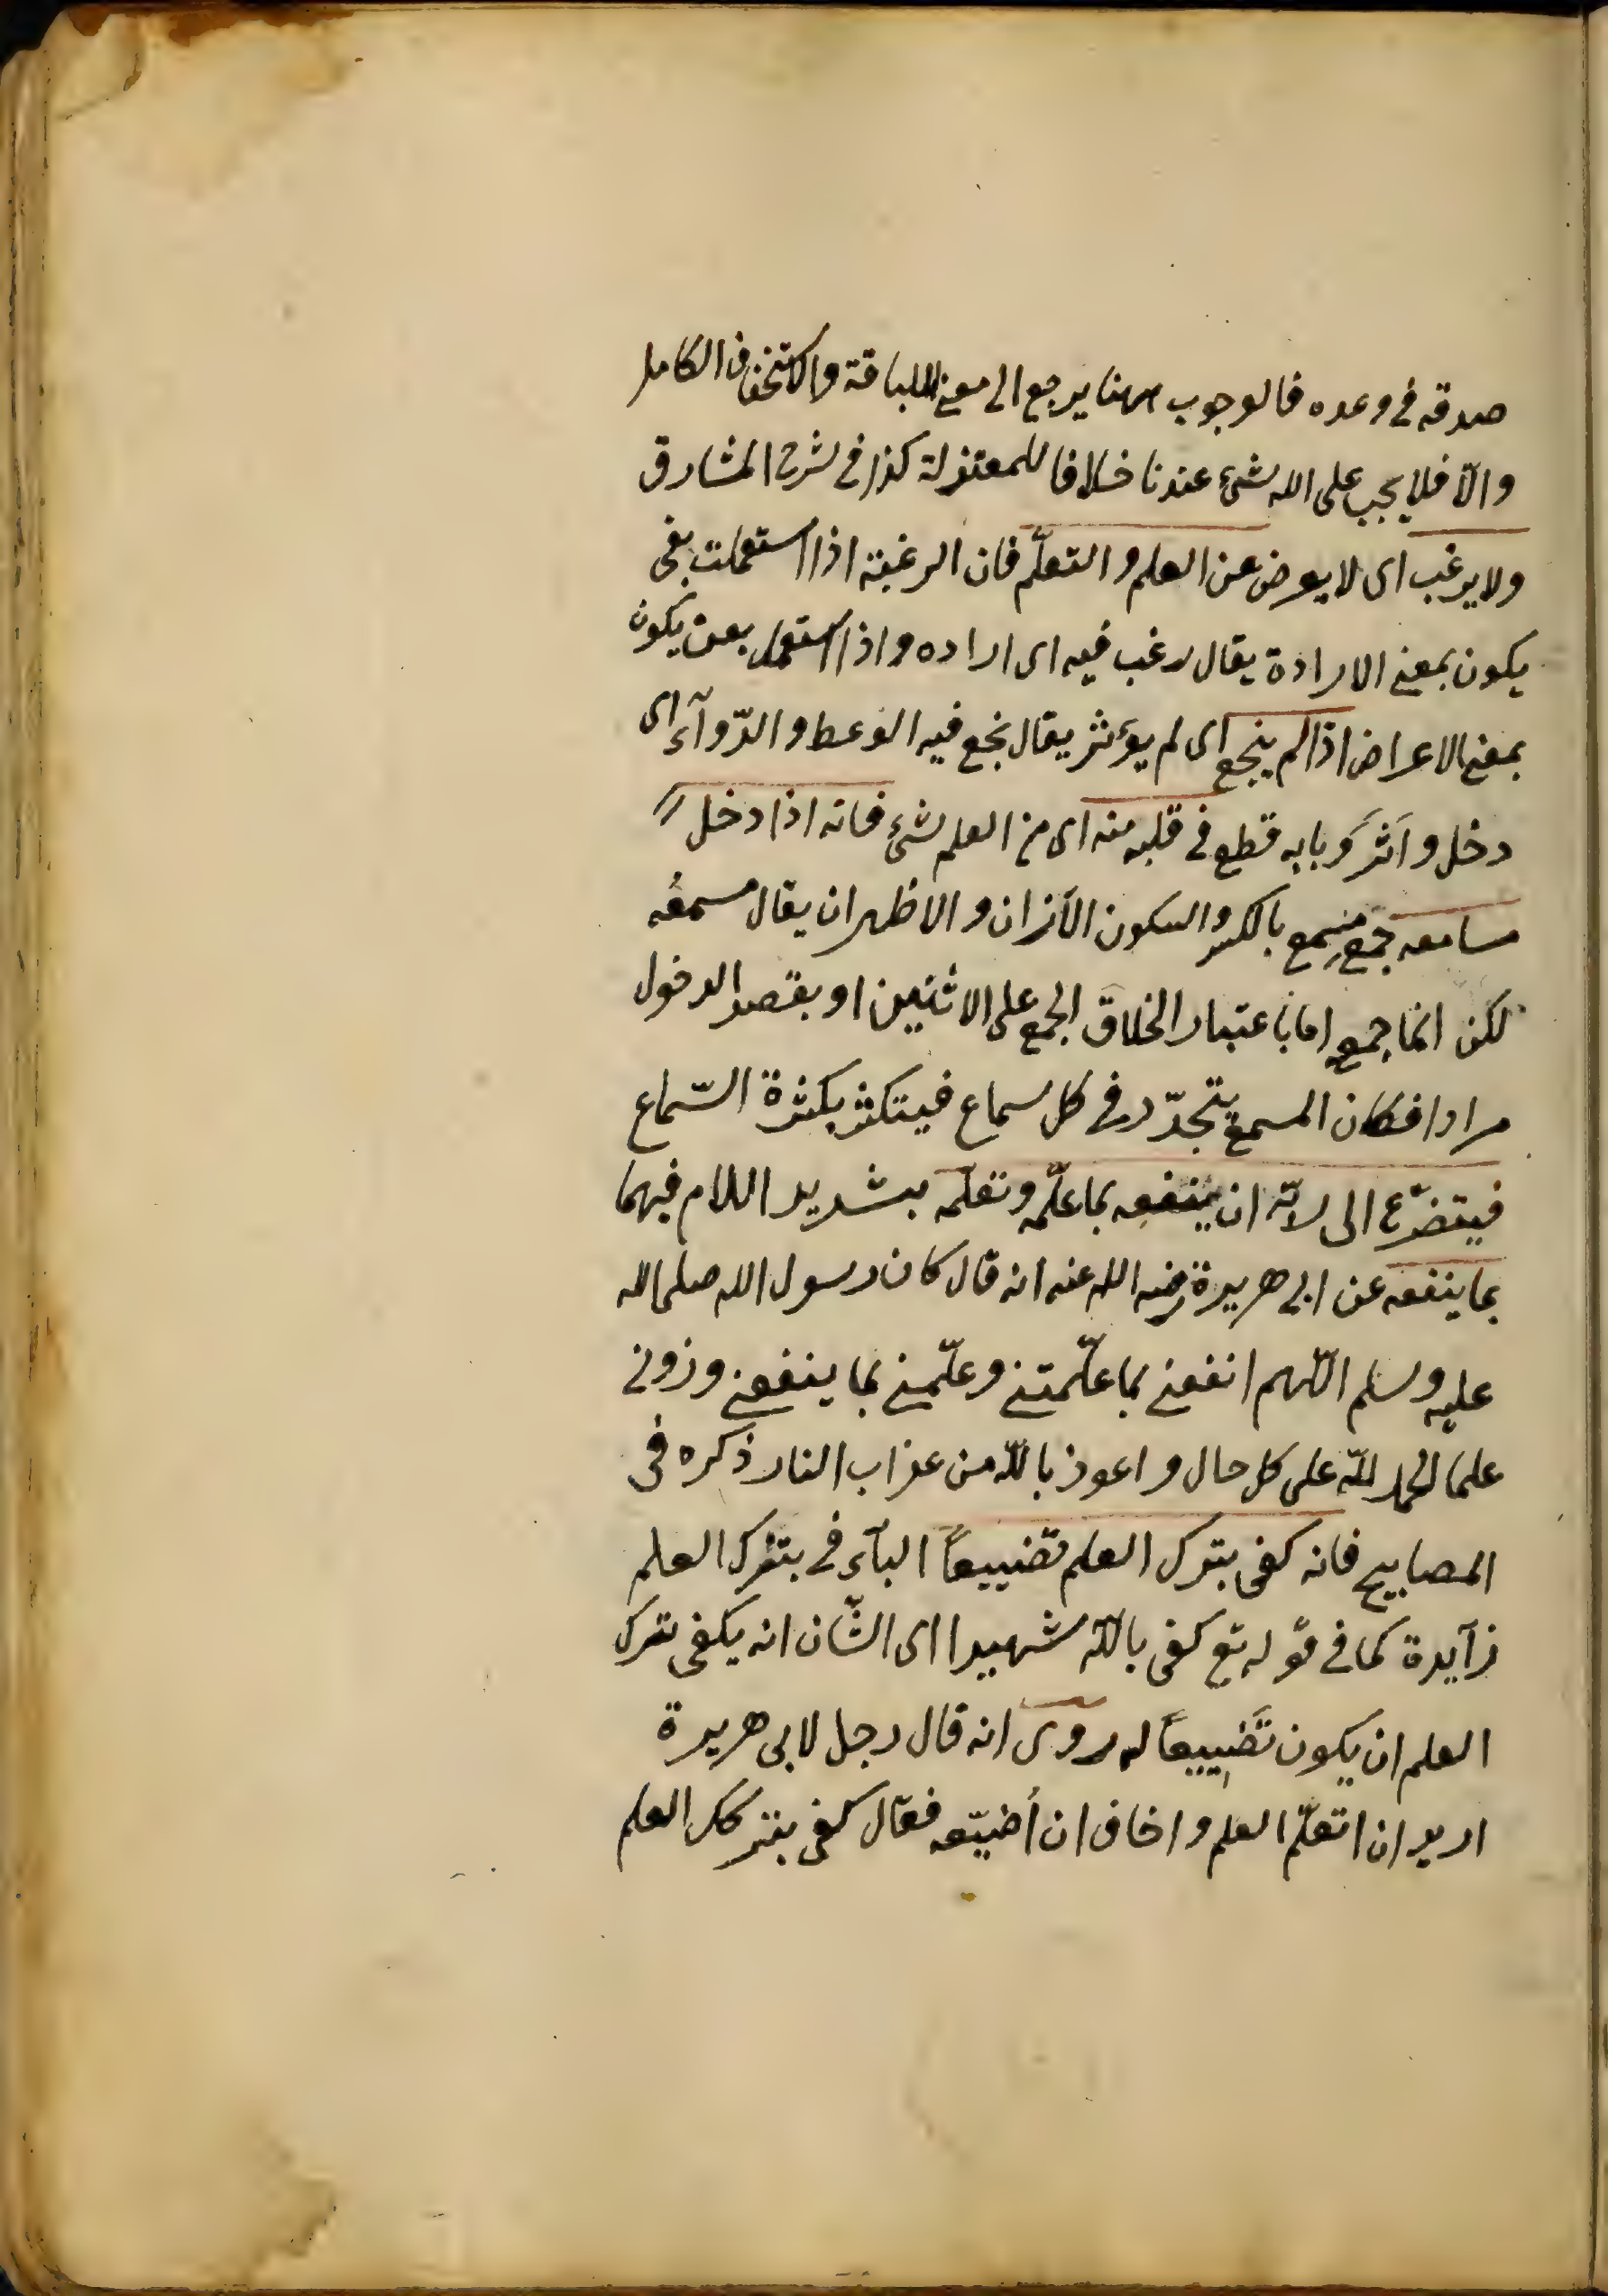 صدقه فى وعده فالوجوب ههنا يرجع الى معنى اللباقة والاستحقاق الكامل
والّا فلا يجب على الله شئ عندنا خلافا للمعتزلة كذا فى شرح المشارق
ولا يرغب اى لا يعرض عن العلم والتعلّم فان الرغبة اذا استعملت بفى
يكون بمعنى الارادة يقال رغب فيه اى اراده واذا استعمل بعن يكون
بمعنى الاعراض اذا لم ينجع اى لم يؤثر يقال نجع فيه الوعط والدّوآء اى
دخل واَثَّرَ وبابه قطع فى قلبه منه اى من العلم شئ فانه اذا دخل
مسامعه جمع مِسمع بالكسر والسكون الآذان والاظهر ان يقال مسمعُه
لكن انّما جمع اما باعتبار اطلاق الجمع على الاثنين او بقصد الدخول
مرارا فكان المسمع يتجدّد فى كل سماع فيتكثر بكثرة السّماع
فيتضرّع الى الله ان ينفعه بما علّمه وتعلّمه بتشديد اللام فيهما
بما ينفعه عن ابى هريرة رضى الله عنه انه قال كان رسول الله صلى الله
عليه وسلم اللّهم انفعنى بما علّمتنى وعلّمنى بما ينفعنى وزدنى
علما الحمد للّه على كل حال واعوذ باللّه من عذاب النار ذكره فى
المصابيح فانه كفى بترك العلم تضييعاً البآء فى بترك العلم
زآيدة كما فى قوله تع كفى باللّه شهيدا اى الشّان انه يكفى ترك
العلم ان يكون تَضْيِيعاً له روى انه قال رجل لابى هريرة
اريد ان اتعلّم العلم واخاف ان أضيّعه فقال كفى بتركك العلم